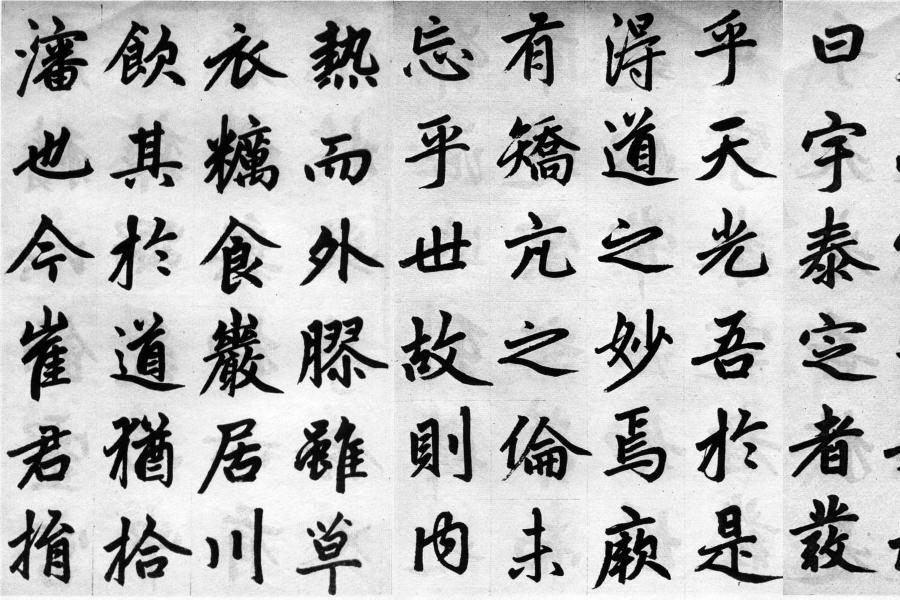 曰宇泰定者發
乎天光吾於是
淂道之妙焉厥
有矯亢之倫未
忘乎世故則内
熱而外膠雖草
衣糲食巖居川
飲其於道猶拾
瀋也今崔君捐